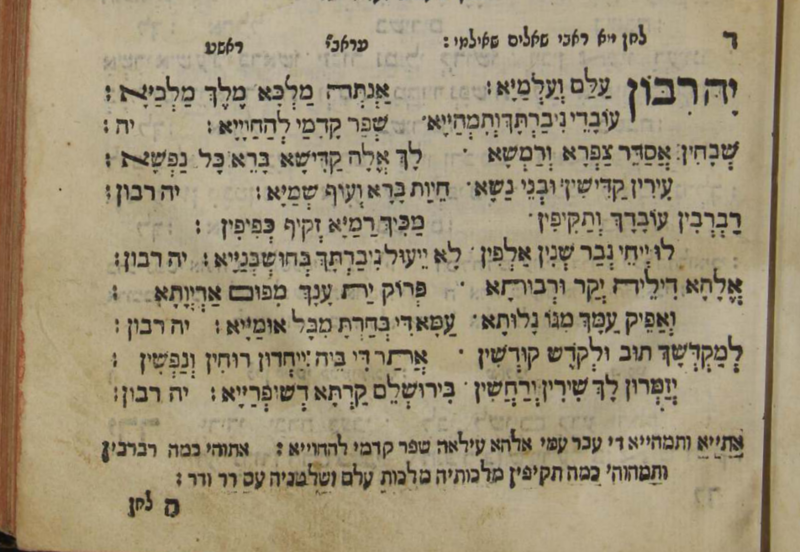 ד לחן יא ראני שאלים שאילמי: עראבי ראשט
יה רבון עָלַם וְעָלְמַיָא: אַנְתְּה מַלְכָּא מֶלֶךְ מַלְכַיָא:
עוֹבָדֵי גִיבַרְתָּךְ וְתִמְהַיָיא שְׁפַר קֳדָמַי לְהַחֲוַיָיא: יה:
שְׁבָחִין אֲסַדֵּר צַפְרָא וְרַמְשָׁא לָךְ אֱלָהָא קַדִישָׁא בָּרֵא כָּל נַפְשָׁא:
עִירִין קַדִישִׁין וּבְנֵי נָשָׁא חֵיוַת בָּרָא וְעוֹף שְׁמַיָא: יה רבון:
רַבְרְבִין עוֹבְדָךְ וְתַקִּיפִין מַכִּיךְ רָמַיָא זָקִיף כְּפִיפִין:
לוּ יִחְיֶ גְּבַר שְׁנִין אַלְפִין לָא יֵיעוּל גִיבַרְתָּךְ בְּחוּשְׁבְּנַיָיא: יה רבון:
אֱלָהָא דִילֵיה יְקַר וּרְבוּתָא פְּרוֹק יַת עָנָךְ מִפּוּם אַרְיְוָתָא:
וְאַפֵּיק עַמָּךְ מִגּוֹ גָלוּתָא עַמָּא דִי בְחַרְתָּ מִכָּל אוּמַיָיא: יה רבון:
לְמַקְדְּשָׁךְ תּוּב וּלְקֹדֶשׁ קוּדְשִׁין אֲתַר דִּי בֵיהּ יֶיחֱדוּן רוּחִין וְנַפְשִׁין:
יְזַמְּרוּן לָךְ שִׁירִין וְרַחֲשִׁין בִּירוּשְׁלֵם קַרְתָּא דְשׁוּפְרַיָיא: יה רבון:
אתייא ותמהייא די עבד עמי אלהא עילאה שפר קדמי להחוייא: אתוהי כמה רברבין
ותמהוהי כמה תקיפין מלכותיה מלכות עלם ושלטניה עם דר ודר:
ה לחן